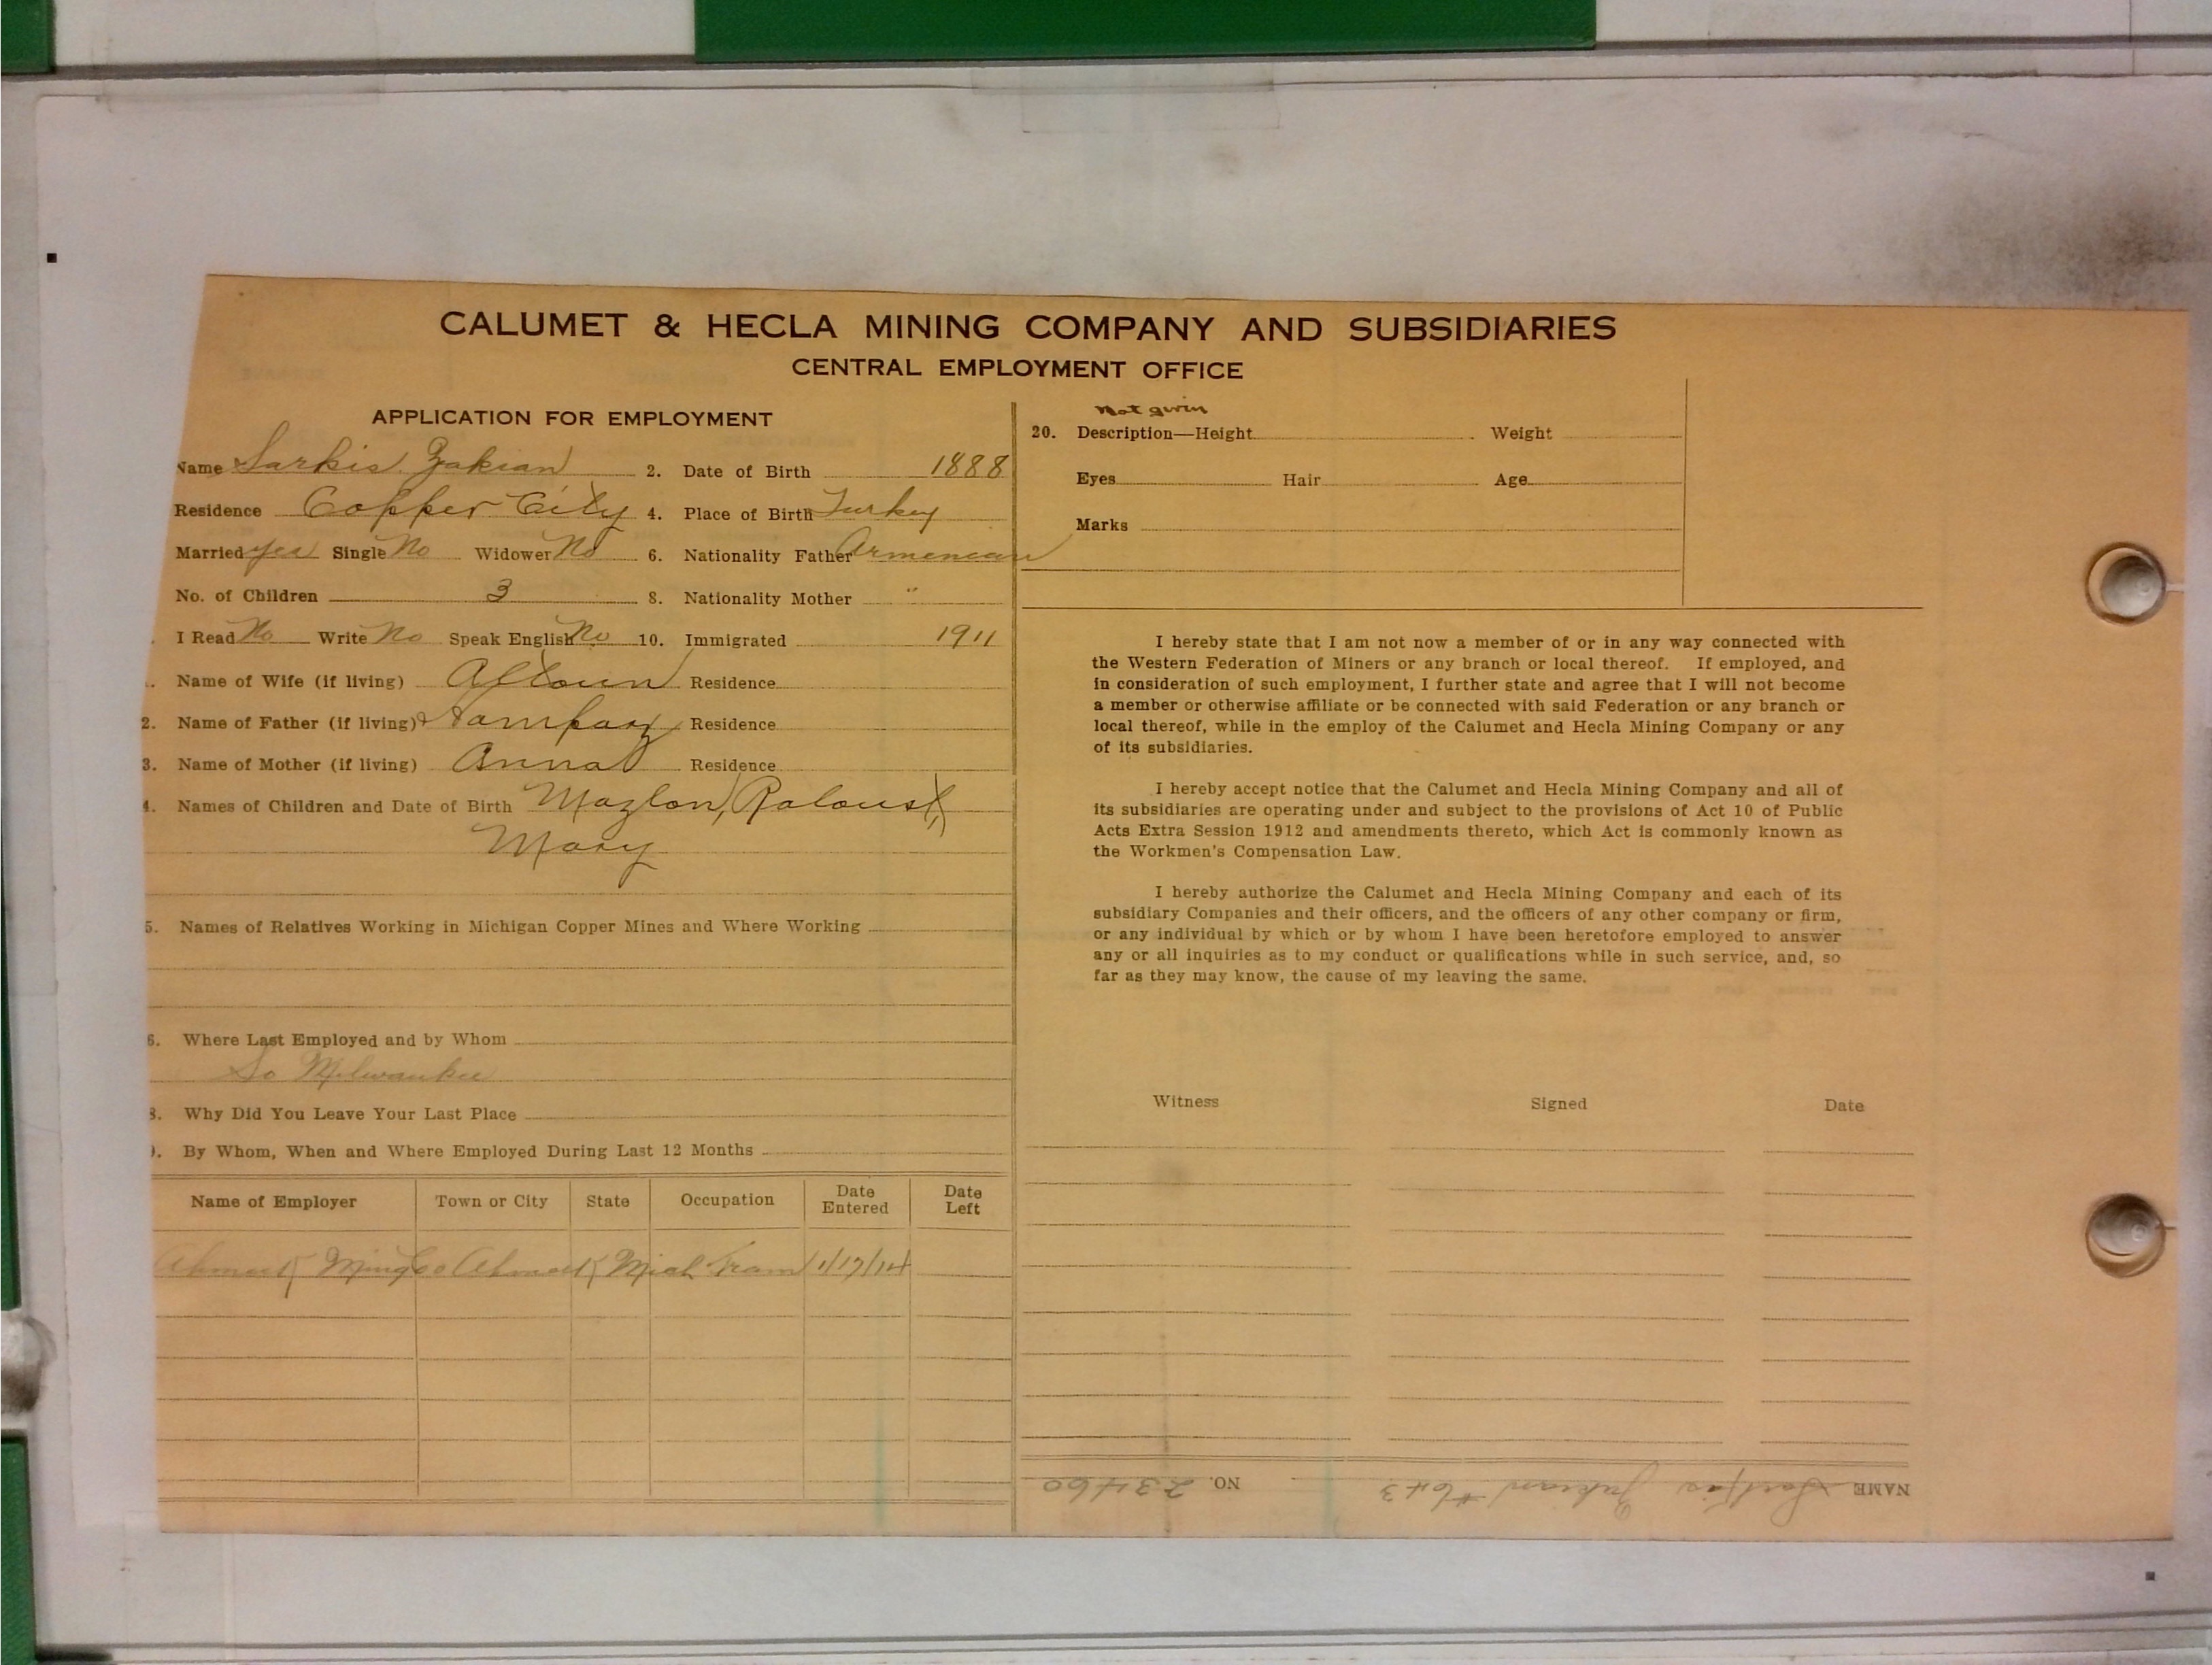 CALUMET & HECLA MINING COMPANY AND SUBSIDIARIES
CENTRAL EMPLOYMENT OFFICE
APPLICATION FOR EMPLOYMENT
Name Sarkis Zakian 2. Date of Birth 1888
Residence Copper City 4. Place of Birth Turkey
Married yes Single No Widower No 6. Nationality Father Armenian
No. of Children 3 8. Nationality Mother "
I Read No Write No Speak English No 10. Immigrated 1911
Name of Wife (if living) Altoun Residence
2. Name of Father (if living) Residence
3. Name of Mother (if living) Anna Residence
4. Names of Children and Date of Birth Mazlon, Raloust,
Mary
5. Names of Relatives Working in Michigan Copper Mines and Where Working
6. Where Last Employed and by Whom
So Milwaukee
8. Why Did You Leave Your Last Place
9. By Whom, When and Where Employed During Last 12 Months
Name of Employer Town or City State Occupation Date Entered Date Left
Ahmeek Ming Co Ahmeek Mich Tram 1/17/14
not given
20. Description—Height Weight
Eyes Hair Age
Marks
I hereby state that I am not now a member of or in any way connected with
the Western Federation of Miners or any branch or local thereof. If employed, and
in consideration of such employment, I further state and agree that I will not become
a member or otherwise affiliate or be connected with said Federation or any branch or
local thereof, while in the employ of the Calumet and Hecla Mining Company or any
of its subsidiaries.
I hereby accept notice that the Calumet and Hecla Mining Company and all of
its subsidiaries are operating under and subject to the provisions of Act 10 of Public
Acts Extra Session 1912 and amendments thereto, which Act is commonly known as
the Workmen's Compensation Law.
I hereby authorize the Calumet and Hecla Mining Company and each of its
subsidiary Companies and their officers, and the officers of any other company or firm,
or any individual by which or by whom I have been heretofore employed to answer
any or all inquiries as to my conduct or qualifications while in such service, and, so
far as they may know, the cause of my leaving the same.
Witness Signed Date
NAME Zakian #643 NO. 23460